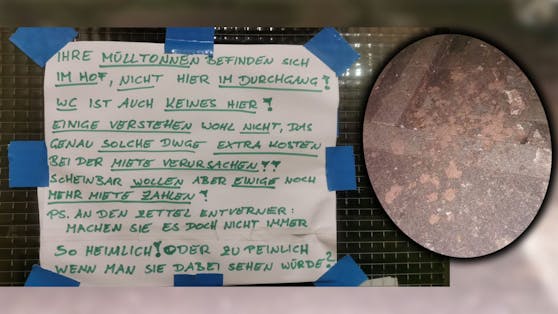 IHRE MÜLLTONNEN BEFINDEN SICH
IM HOF, NICHT HIER IM DURCHGANG!
WC IST AUCH KEINES HIER!
EINIGE VERSTEHEN WOHL NICHT, DAS
GENAU SOLCHE DINGE EXTRA KOSTEN
BEI DER MIETE VERURSACHEN!?
SCHEINBAR WOLLEN ABER EINIGE NOCH
MEHR MIETE ZAHLEN!
PS. AN DEN ZETTEL ENTVERNER:
MACHEN SIE ES DOCH NICHT IMMER
SO HEIMLICH! ODER ZU PEINLICH
WENN MAN SIE DABEI SEHEN WÜRDE?